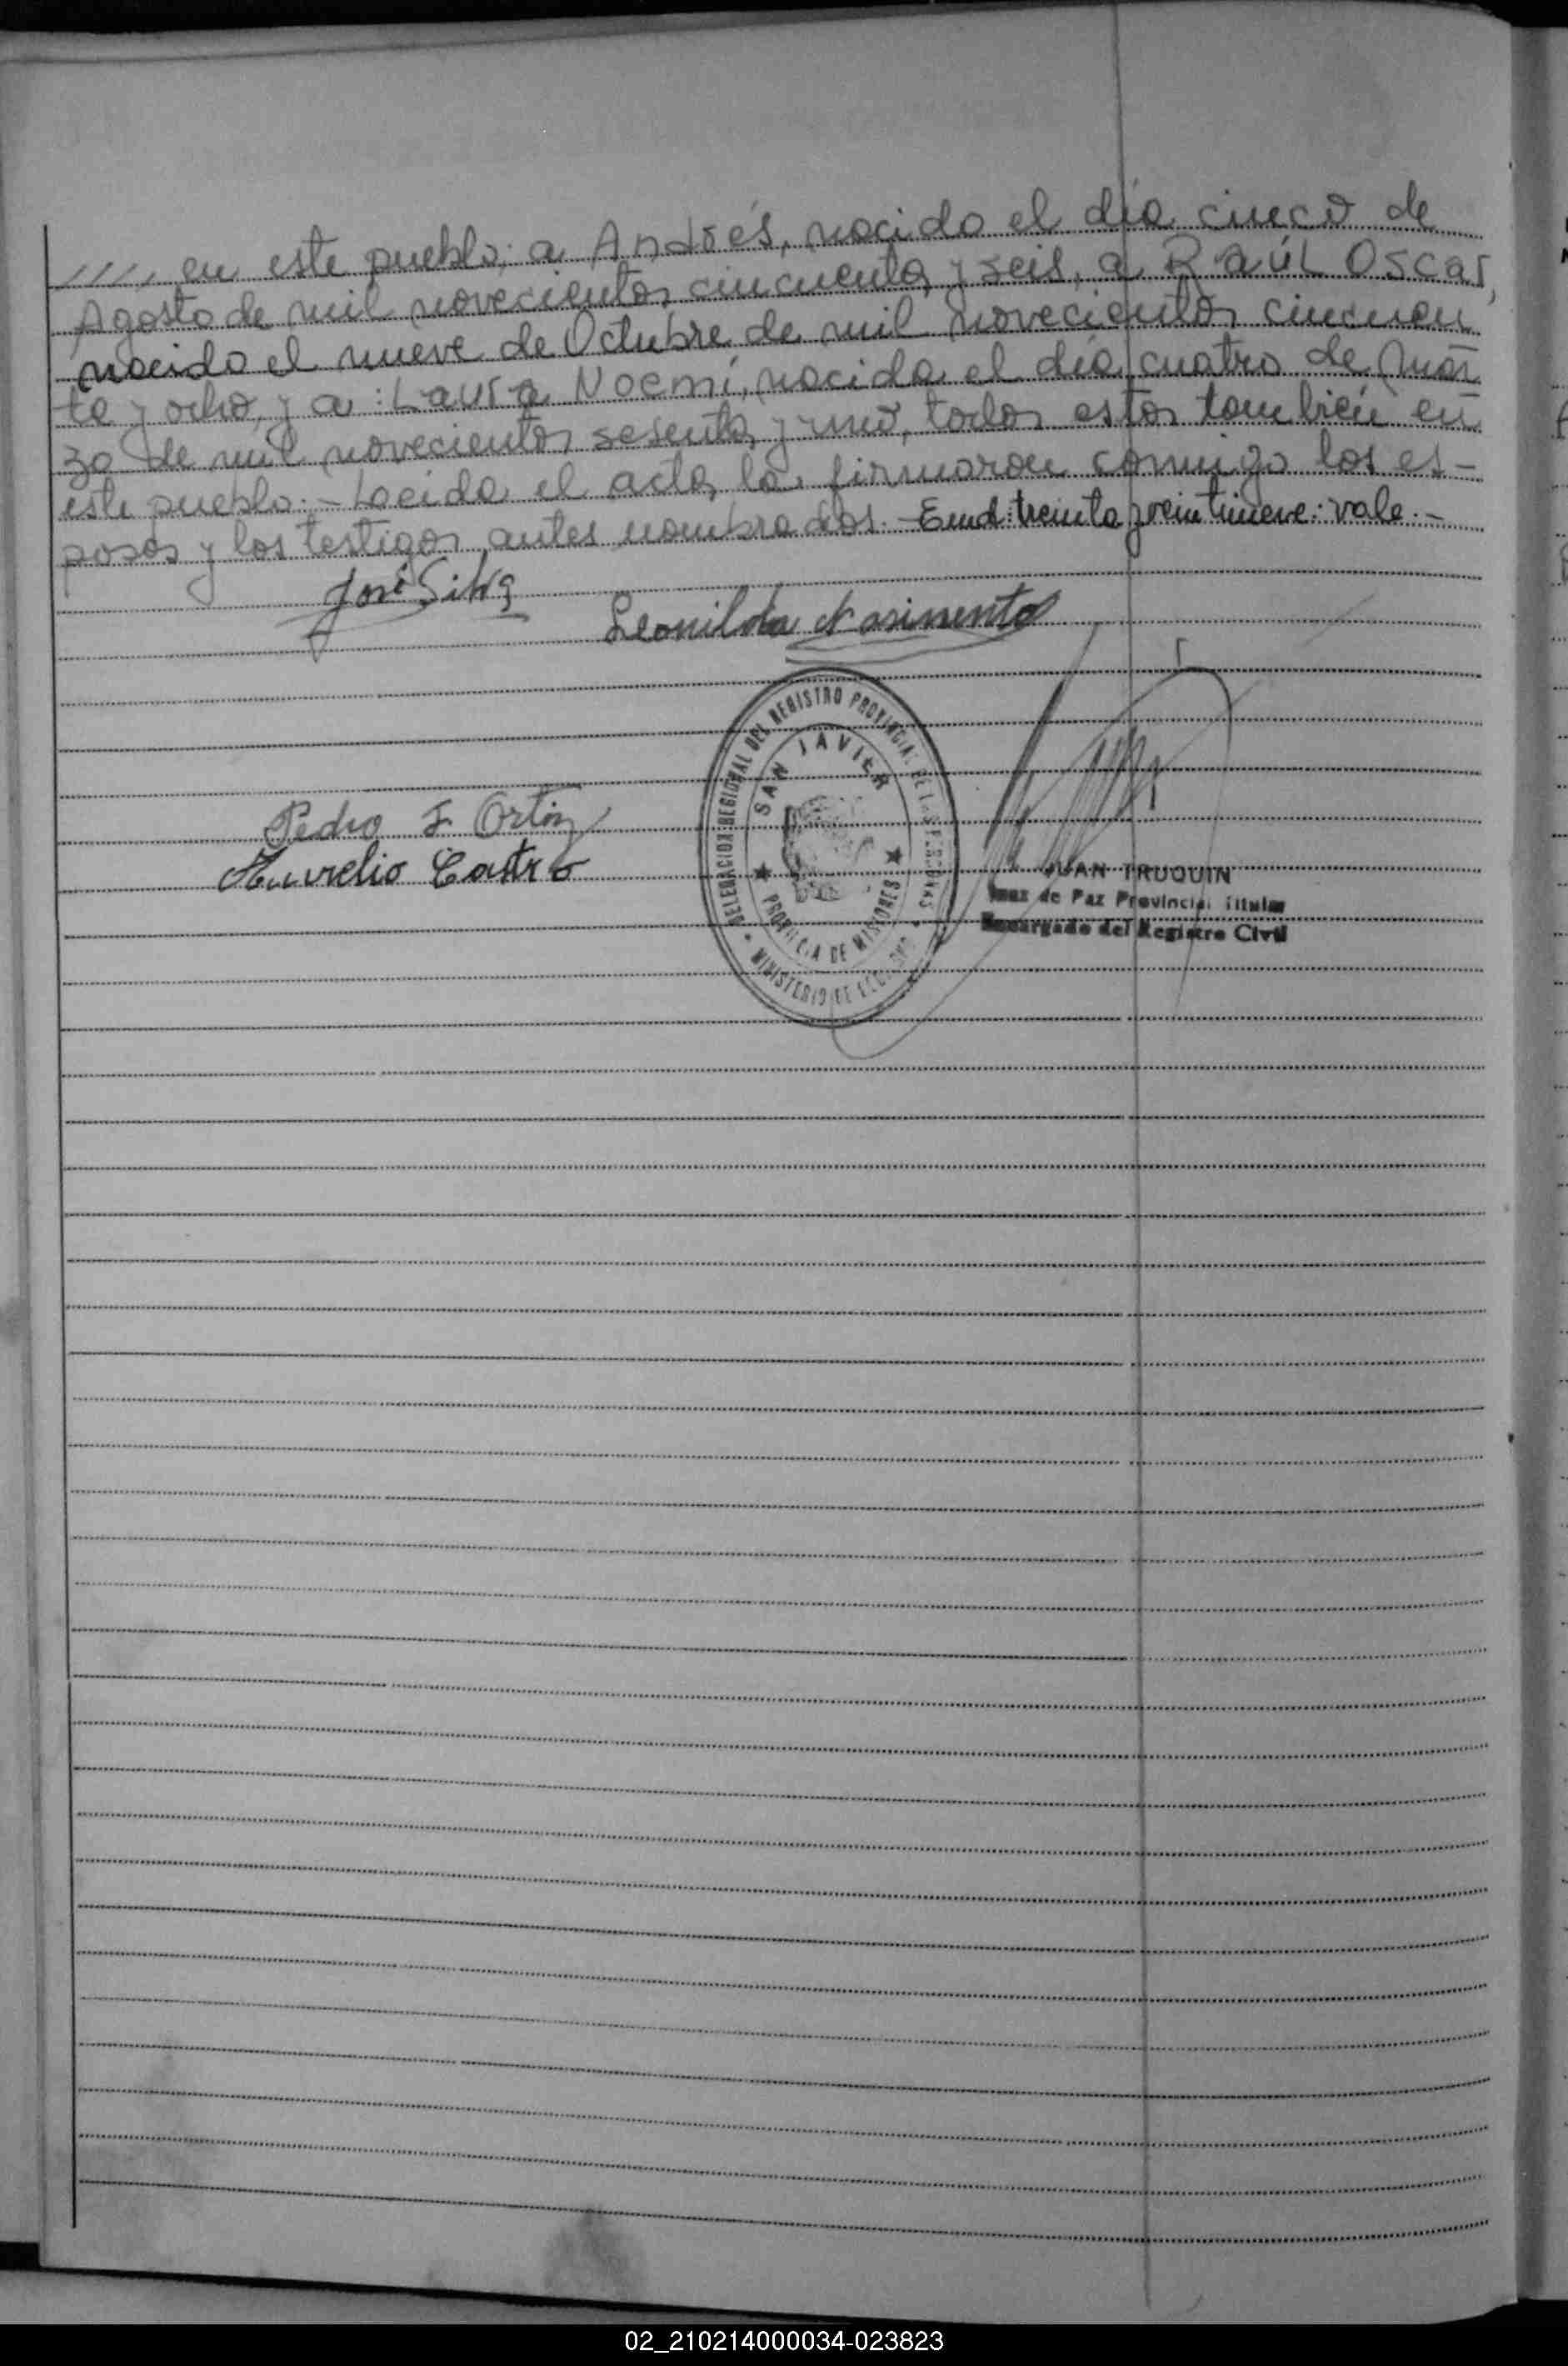 ////, en este pueblo; a Andrés, nacido el día cinco de
Agosto de mil novecientos cincuenta y seis, a Raúl Oscar,
nacido el nueve de Octubre de mil novecientos cincuen
ta y ocho, y a: Laura Noemí, nacida el día cuatro de Mar
zo de mil novecientos sesenta y uno, todos estos también en
este pueblo.- Leída el acta, la firmaron conmigo los es-
posos y los testigos antes nombrados.- Emd: treinta y veintinueve: vale.-
José Silva
Leonilda Nasimento
Pedro F Ortiz
Aurelio Castro
DELEGACION REGIONAL DEL REGISTRO PROVINCIAL DE LAS PERSONAS
SAN JAVIER
PROVINCIA DE MISIONES
MINISTERIO DE
JUAN TRUQUIN
Juez de Paz Provincial Titular
Encargado del Registro Civil
02_210214000034-023823